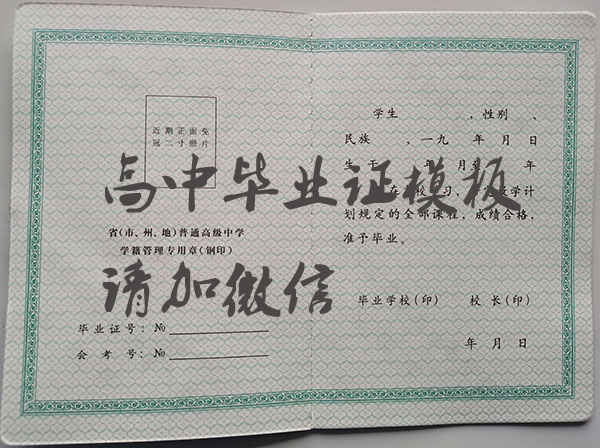 近期正面免
冠二寸照片
省(市、州、地)普通高级中学
学籍管理专用章(钢印)
毕业证号: №
会考号: №
学生 ,性别 ,
民族 ,一九 年 月 日
生于 年 月 年
在 校 习, 学计
划规定的全部课程,成绩合格,
准予毕业。
毕业学校(印) 校长(印)
年 月 日
高中毕业证模板
请加微信